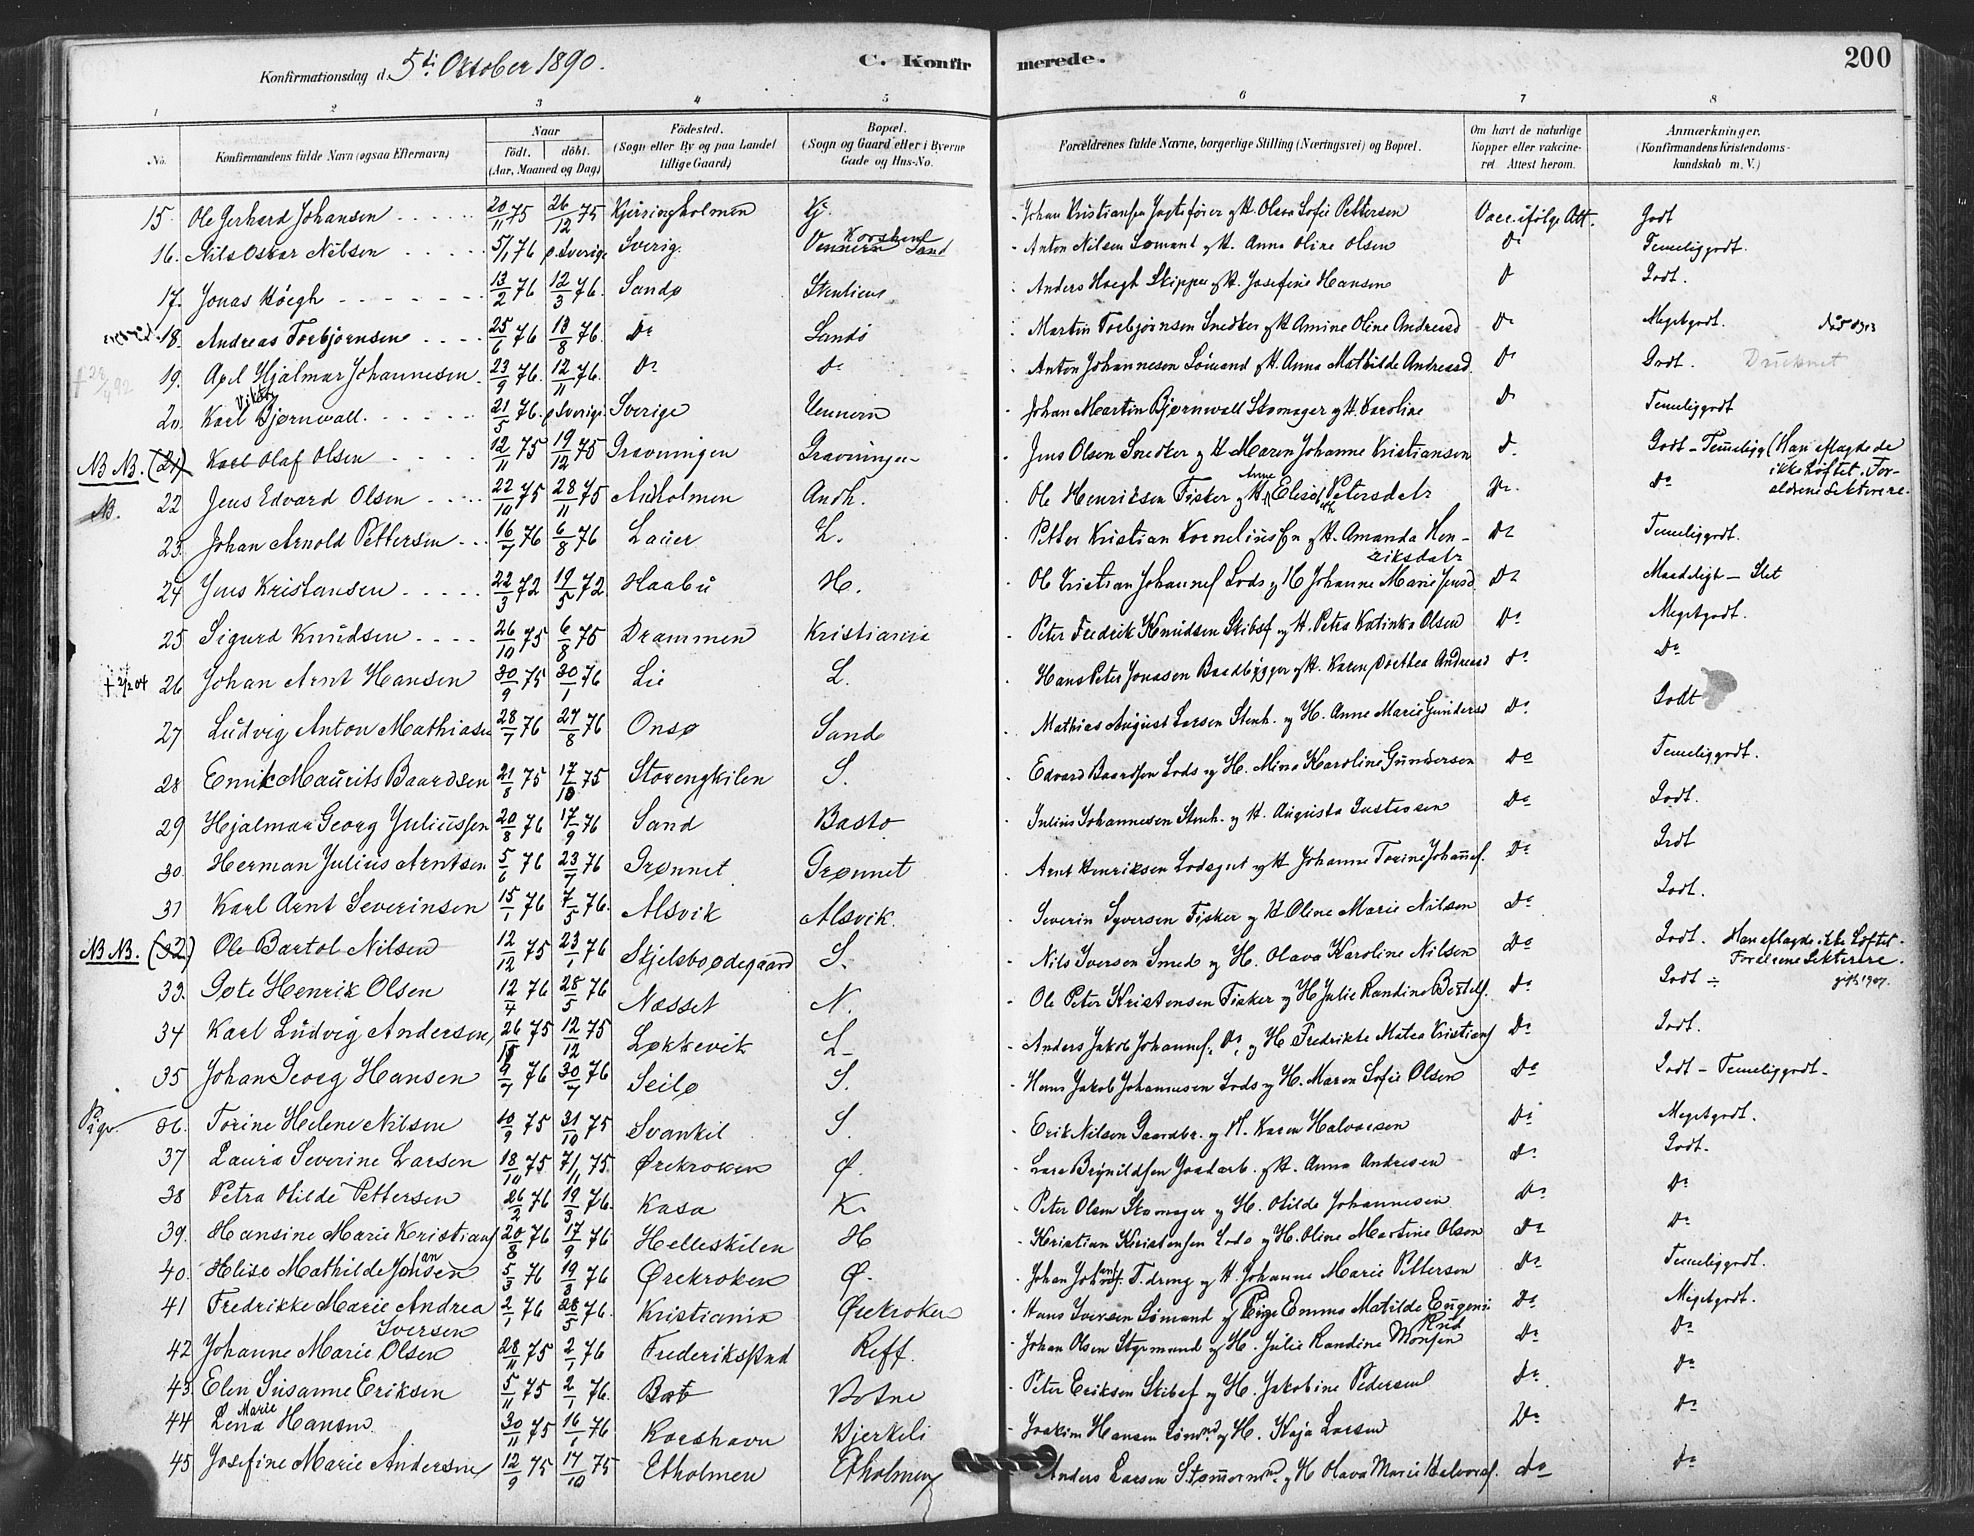 Konfirmationsdag d. 5te Oktober 1890.
C. Konfir merede.
200
1 2 3 4 5 6 7 8
No.
Konfirmandens fulde Navn (ogsaa Efternavn)
Naar
født. døbt.
(Aar, Maaned og Dag)
Fødested.
(Sogn eller By og paa Landet
tillige Gaard)
Bopæl.
(Sogn og Gaard eller i Byerne
Gade og Hus-No.
Forældrenes fulde Navne, borgerlige Stilling (Næringsvei) og Bopæl.
Om havt de naturlige
Kopper eller vakcine-
ret. Attest herom.
Anmærkninger.
(Konfirmandens Kristendoms-
kundskab m. V.)
15. Ole Gerhard Johansen 20/11 75 26/12 75 Kjerringholmen Kj. Johan Kristiansen Jagtefører og H. Olava Sofie Pettersen Vacc. ifølge Att. Godt
16. Nils Oskar Nilsen 5/1 76 i Sverige Sverig. Vennern Korshavn Sand Anton Nilsen Sømand og H. Anna Oline Olsen Do Temeliggodt.
17. Jonas Høegh 13/2 76 12/3 76. Sandø Anders Høegh Skipper og H. Josefine Hansen D Godt.
18. Andreas Torbjørnsen 25/6 76 13/8 76. Do Sandø Martin Torbjørnsen Snedker og H. Amine Oline Andreasd Do Megetgodt. 1913
† 23/4 92 19. Axel Hjalmar Johannesen 23/9 76. 12/11 76. Do do Anton Johannesen Sømand og H. Anna Mathilde Andreasd. Do Godt. Druknet
20 Karl Viktor Bjørnwall. 21/5 76. i Sverige Sverige Vennern Johan Martin Bjørnwall Skomager og H. Karoline Do Temeliggodt
NB NB. (21) Karl Olaf Olsen 12/11 75 19/12 75 Gravningen Gravningen Jens Olsen Snedker og H Maren Johanne Kristiansen D. Godt - Temelig (Han aflagde de
ikke Løftet. For-
ældrene Sekterere.
NB. 22 Jens Edvard Olsen 22/10 75 28/11 75 Andholmen Andh. Ole Henriksen Fisker og H. Anne Elisabeth Petersdatr Do. Do
23. Johan Arnold Pettersen 16/7 76 6/8 76 Lauer L. Petter Kristian Korneliussen og H. Amanda Hen-
riksdatr Do Temeliggodt.
24 Jens Kristansen 22/3 72 19/5 72 Haabu H. Ole Kristian Johannes Lods og H Johanne Marie Jensd. Do Maadeligt - Slet
25 Sigurd Knudsen 26/10 75 6/8 75 Drammen Kristiania Peter Fredrik Knudsen Skibsf og H. Petra Katinka Olsen Do Megetgodt.
† 2/2 04 26 Johan Arnt Hansen 30/9 75 30/1 76 Lie L. Hans Peter Jonasen Baadbygger og H. Karen Dorthea Andreasd do Do
27 Ludvig Anton Mathiasen 28/7 76 27/8 76 Onsø Sand Mathias August Larsen Stenh. og H. Anne Marie Gundersd Do Godt
28 Emil Maurits Baardsen 21/8 75 17/10 75 Storengkilen S. Edvard Baardsen Lods og H. Mina Karoline Gundersen Do Temeliggodt.
29 Hjalmar Georg Juliussen 20/8 76 17/9 76 Sand Bastø Julius Johannesen Stenh. og H. Augusta Gustavsen Do Godt.
30. Herman Julius Arntsen 5/6 76 23/7 76 Grønnet Grønnet Arnt Henriksen Lodsgut og H Johanne Torine Johannes. Do Godt
31 Karl Arnt Severinsen 15/1 76 7/5 76. Alsvik Alsvik. Severin Syversen Fisker og H Oline Marie Nilsen Do Godt.
NB NB. (32) Ole Bartol Nilsen 12/12 75 23/1 76 Skjelsbodegaard S. Nils Iversen Smed og H. Olava Karoline Nilsen Do Godt. Han aflagde ikke Løftet.
Forældrene Sekterere.
33. Gote Henrik Olsen 12/4 76 28/5 76 Næsset N. Ole Peter Kristensen Fisker og H Julie Randine Bertels. Do Godt ÷ gift 1907.
34 Karl Ludvig Andersen 26/10 75 12/12 75 Løkkevik L. Anders Jakob Johannes. Do. og H Fredrikke Matea Kristians Do Godt.
35 Johan Georg Hansen 9/7 76 30/7 76 Seilø S. Hans Jakob Johannesen Lods og H. Maren Sofie Olsen Do Godt - Temeliggodt.
Piger 36. Torine Helene Nilsen 10/9 75 31/10 75 Svankil S. Erik Nilsen Gaardbr. og H. Karen Halvorsen Do Megetgodt.
37 Laura Severine Larsen 18/10 75 7/11 75. Ørekroken Ø. Lars Brynildsen Gaardarb. og H. Anna Andresen Do Godt.
38 Petra Otilde Pettersen 26/2 76 19/3 76. Kasa K. Peter Olsen Skomager og H. Otilde Johannesen Do Do
39. Hansine Marie Kristians 20/8 76 17/9 76 Helleskilen H Kristian Kristensen Lods og H. Oline Martine Olsen Do Do
40. Elise Mathilde Johansen 5/3 76 19/3 76 Ørekroken Ø. Johan Johans. F.dreng og H. Johanne Marie Pettersen Do Temeliggodt.
41 Fredrikke Marie Andrea
Iversen 2/1 76 28/5 76. Kristiania Ørekroken Hans Iversen Sømand og Pige Emma Matilde Eugenie Do Megetgodt.
42 Johanne Marie Olsen 28/11 75 2/1 76 Frederikstad Reff. Johan Olsen Styrmand og H. Julie Randine Monsen Do Do
43. Elen Susanne Eriksen 5/11 75 2/1 76. Bat Botne Peter Eriksen Skibsf og H. Jakobine Pedersen Do Do
44 Lena Marie Hansen 30/11 75 16/1 76 Korshavn Bjerkeli Joakim Hansen Sømnd og H. Kaja Larsen Do Do
45 Josefine Marie Andersen 12/9 75 17/10 75 Etholmen Etholmen Anders Larsen Stømormnd. og H Olava Marie Halvors. do Do